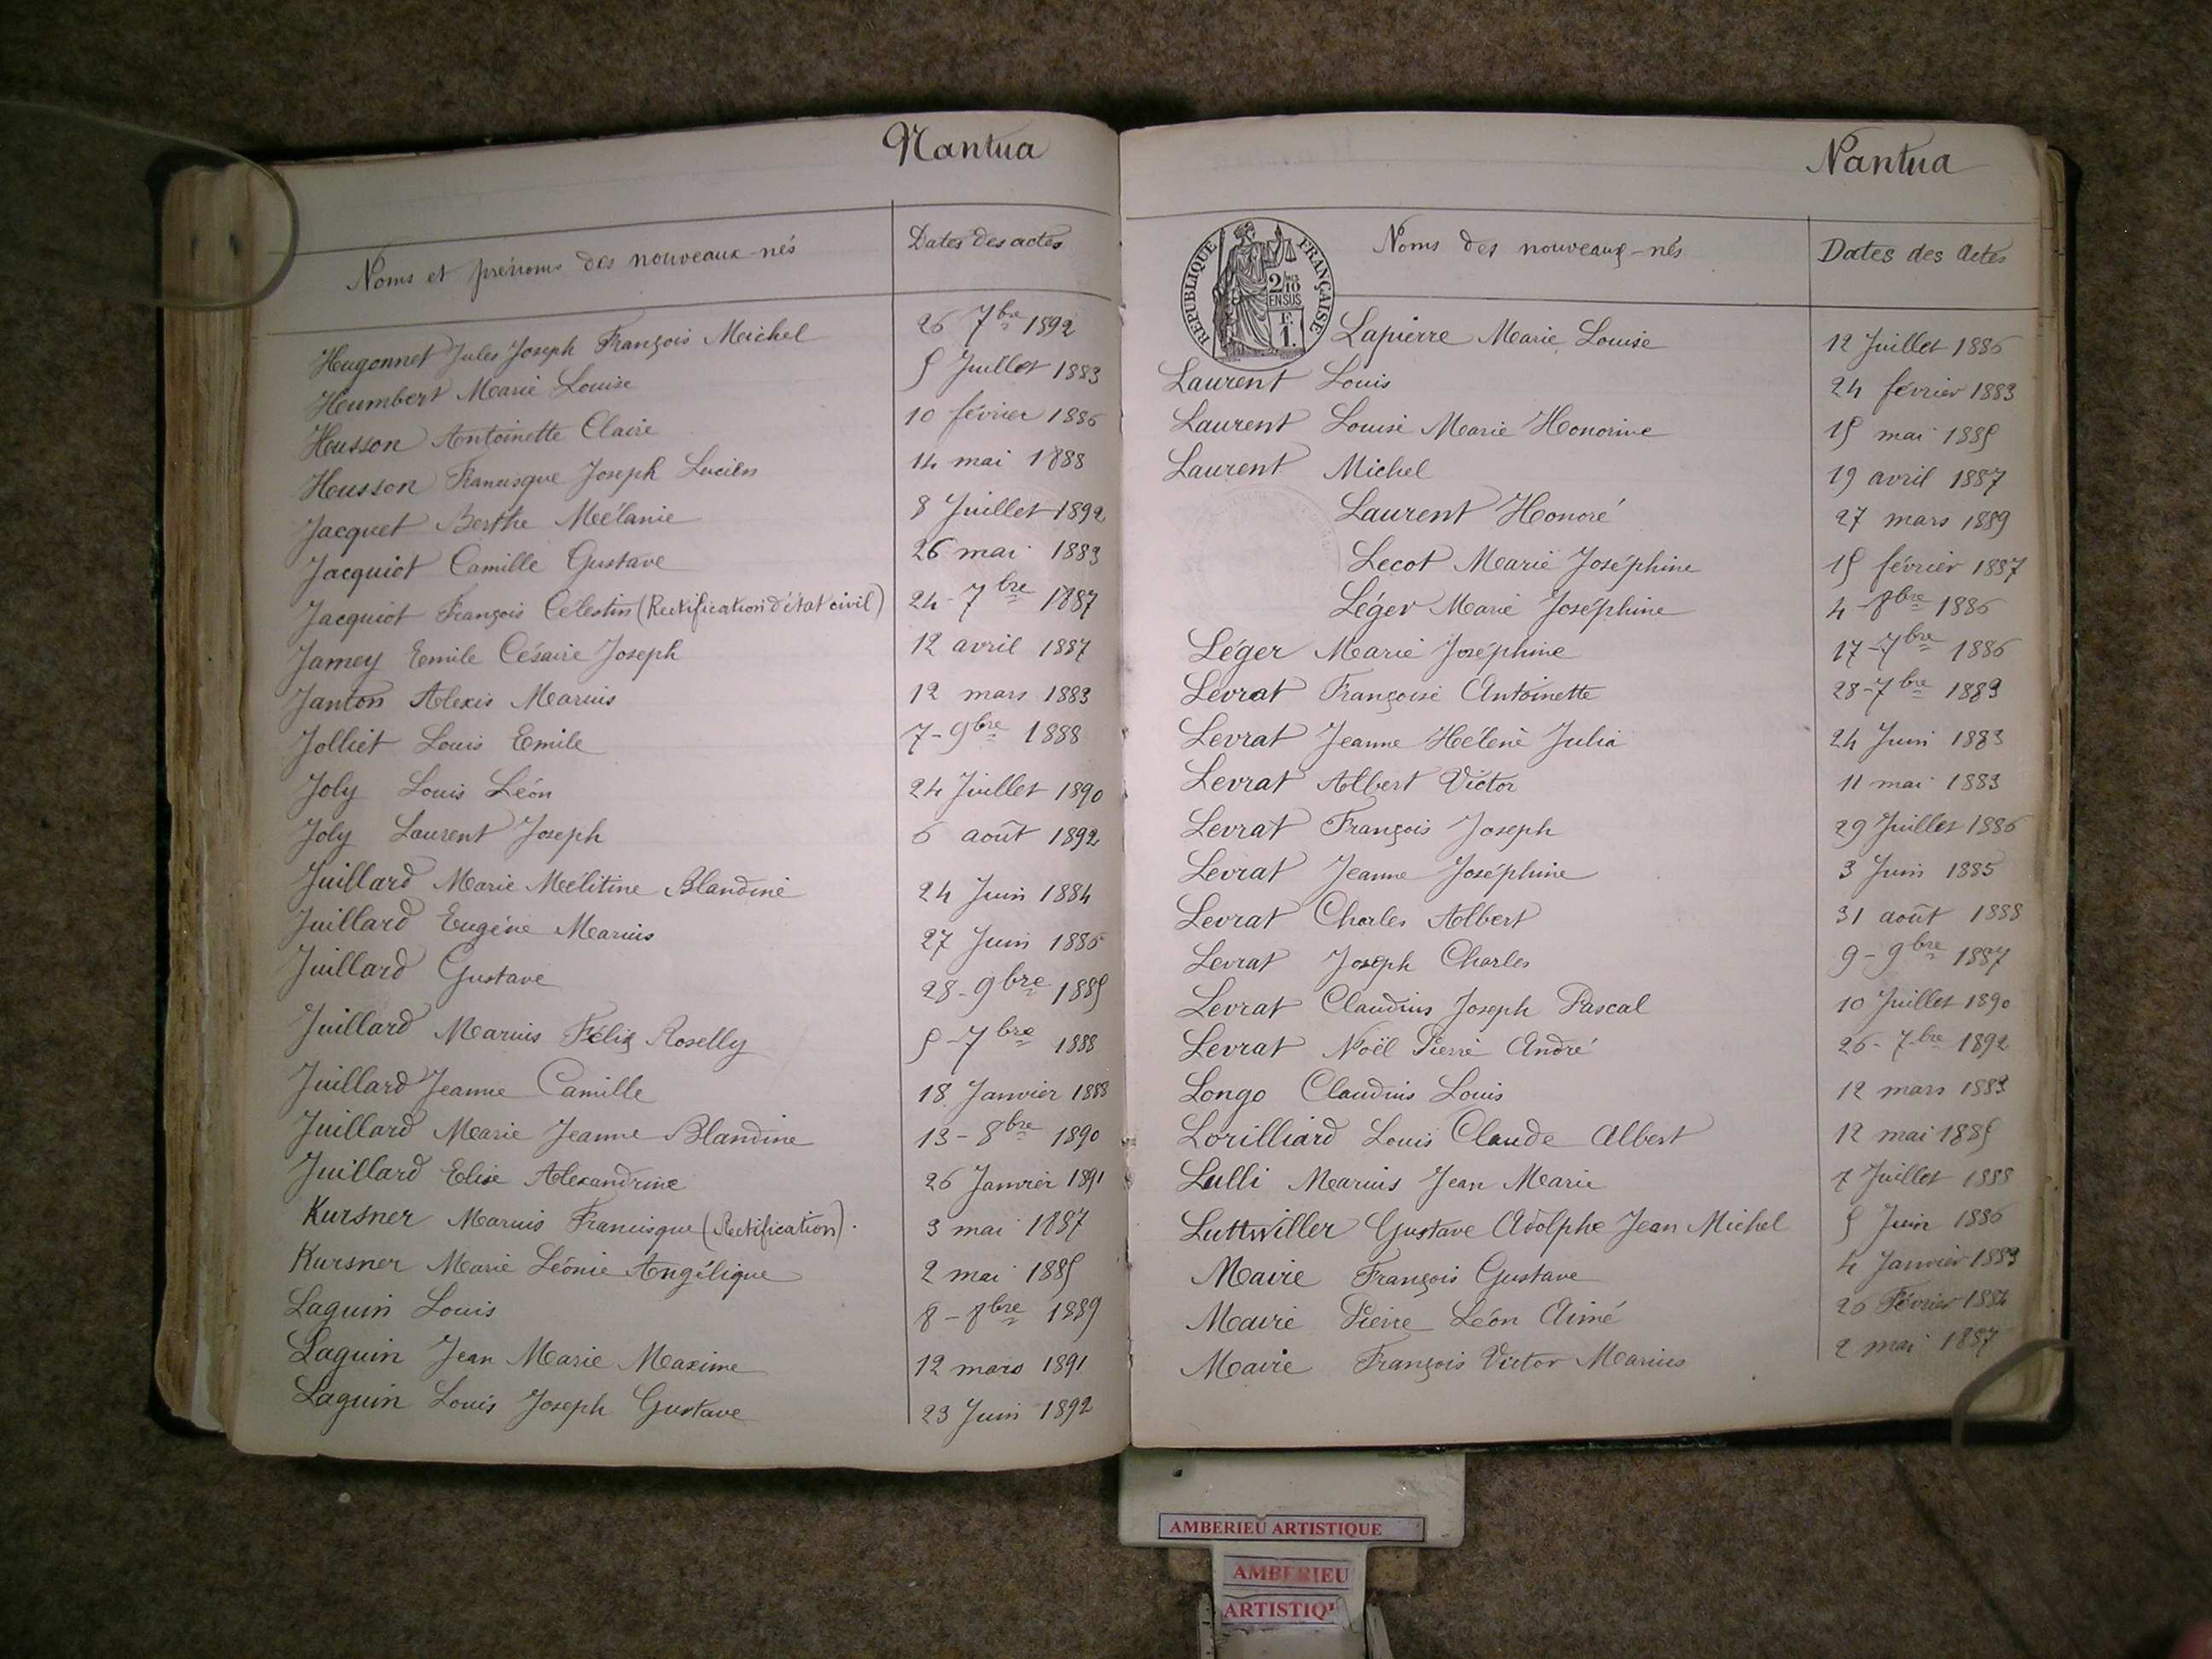 Nantua
Noms et prénoms des nouveaux-nés Dates des actes
Hugonnet Jules Joseph François Michel 26 7bre 1892
Humbert Marie Louise 5 Juillet 1883
Husson Antoinette Claire 10 février 1886
Husson Francisque Joseph Lucien 14 mai 1888
Jacquet Berthe Mélanie 8 Juillet 1892
Jacquiot Camille Gustave 26 mai 1883
Jacquiot François Célestin (Rectification d'état civil) 24 - 7bre 1887
Jamey Emile Césaire Joseph 12 avril 1887
Janton Alexis Marius 12 mars 1883
Jolliet Louis Emile 7 - 9bre 1888
Joly Louis Léon 24 Juillet 1890
Joly Laurent Joseph 6 août 1892
Juillard Marie Mélitine Blandine 24 Juin 1884
Juillard Eugène Marius 27 Juin 1886
Juillard Gustave 28 - 9bre 1885
Juillard Marius Félix Roselly 5 - 7bre 1888
Juillard Jeanne Camille 18 Janvier 1888
Juillard Marie Jeanne Blandine 13 - 8bre 1890
Juillard Elise Alexandrine 26 Janvier 1891
Kursner Marius Francisque (Rectification). 3 mai 1887
Kursner Marie Léonie Angélique 2 mai 1885
Laguin Louis 8 - 8bre 1889
Laguin Jean Marie Maxime 12 mars 1891
Laguin Louis Joseph Gustave 23 Juin 1892
Nantua
REPUBLIQUE FRANÇAISE
2/10
EN SUS
F.
1.
Noms des nouveaux-nés Dates des Actes
Lapierre Marie Louise 12 Juillet 1886
Laurent Louis 24 février 1883
Laurent Louise Marie Honorine 15 mai 1885
Laurent Michel 19 avril 1887
Laurent Honoré 27 mars 1889
Lecot Marie Joséphine 15 février 1887
Léger Marie Joséphine 4 - 8bre 1886
Léger Marie Joséphine 17 - 7bre 1886
Levrat Françoise Antoinette 28 - 7bre 1883
Levrat Jeanne Hélène Julia 24 Juin 1883
Levrat Albert Victor 11 mai 1883
Levrat François Joseph 29 Juillet 1886
Levrat Jeanne Joséphine 3 Juin 1885
Levrat Charles Albert 31 août 1888
Levrat Joseph Charles 9 - 9bre 1887
Levrat Claudius Joseph Pascal 10 Juillet 1890
Levrat Noël Pierre André 26 - 7bre 1892
Longo Claudius Louis 12 mars 1883
Lorilliard Louis Claude Albert 12 mai 1885
Lulli Marius Jean Marie 7 Juillet 1888
Luttwiller Gustave Adolphe Jean Michel 5 Juin 1886
Maire François Gustave 4 Janvier 1883
Maire Pierre Léon Aimé 26 Février 1884
Maire François Victor Marius 2 mai 1887
AMBERIEU ARTISTIQUE
AMBERIEU
ARTISTIQ